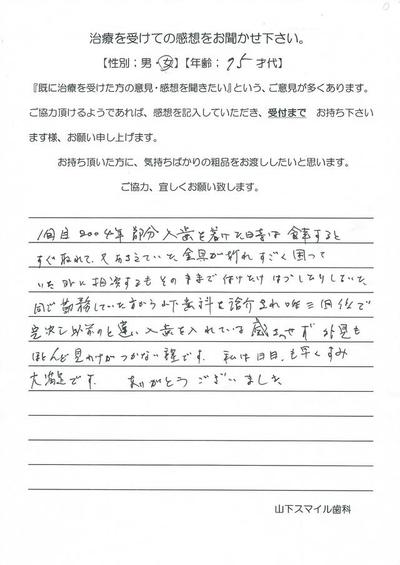 治療を受けての感想をお聞かせ下さい。
【性別:男・女】【年齢:75才代】
『既に治療を受けた方の意見・感想を聞きたい』という、ご意見が多くあります。
ご協力頂けるようであれば、感想を記入していただき、受付まで お持ち下さい
ます様、お願い申し上げます。
お持ち頂いた方に、気持ちばかりの粗品をお渡ししたいと思います。
ご協力、宜しくお願い致します。
1回目2004年部分入歯を着けた時は食事すると
すぐ ねれて、又おさえていた金具が折れすごく困って
いた 外に相談するもそのままで付けたりはずしたりしていた
同じ勤務していた方から山下歯科を紹介され 三回位で
完決し以前のと違い入歯を入れている感じせず外見も
ほとんど見わけがつかない程です。私は日日も早くすみ
大満足です。ありがとうございました
山下スマイル歯科